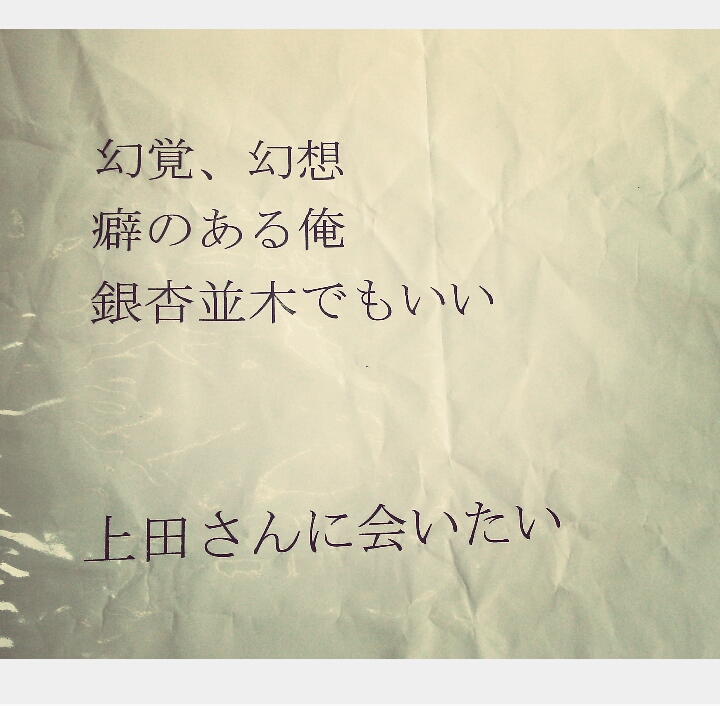 幻覚、幻想
癖のある俺
銀杏並木でもいい
上田さんに会いたい